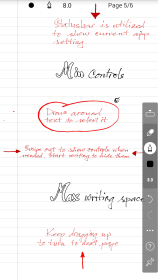 8.0 Page 5/6
Statusbar is utilized
to show current app
setting
Min Controls
Draw around
text to select it
Swipe out to show controls when
needed. Start writing to hide them
Max writing space
Keep dragging up
to turn to next page